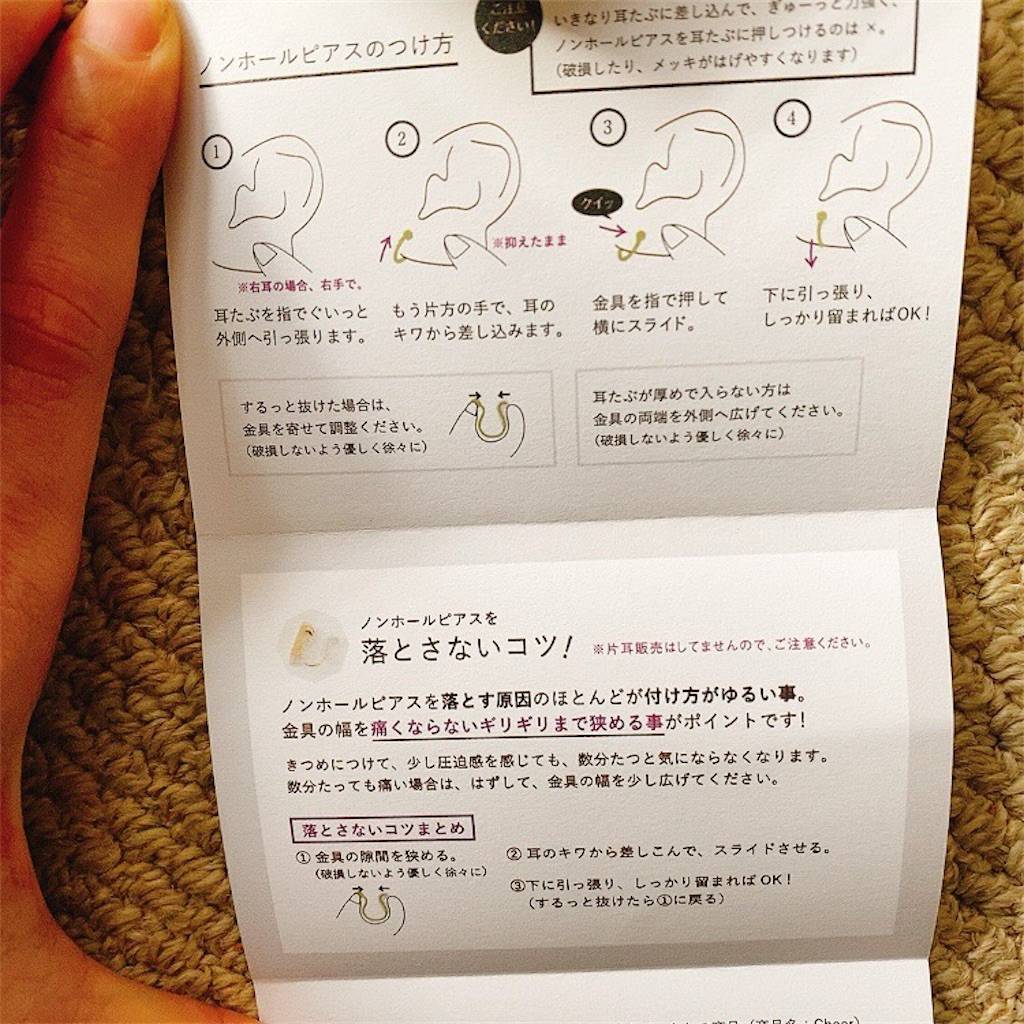 ノンホールピアスのつけ方
ご注意
ください!
いきなり耳たぶに差し込んで、ぎゅーっと力強く、
ノンホールピアスを耳たぶに押しつけるのは ×。
(破損したり、メッキがはげやすくなります)
①
※右耳の場合、右手で。
耳たぶを指でぐいっと
外側へ引っ張ります。
②
※抑えたまま
もう片方の手で、耳の
キワから差し込みます。
③
クイッ
金具を指で押して
横にスライド。
④
下に引っ張り、
しっかり留まればOK!
するっと抜けた場合は、
金具を寄せて調整ください。
(破損しないよう優しく徐々に)
耳たぶが厚めで入らない方は
金具の両端を外側へ広げてください。
(破損しないよう優しく徐々に)
ノンホールピアスを
落とさないコツ!
※片耳販売はしてませんので、ご注意ください。
ノンホールピアスを落とす原因のほとんどが付け方がゆるい事。
金具の幅を痛くならないギリギリまで狭める事がポイントです!
きつめにつけて、少し圧迫感を感じても、数分たつと気にならなくなります。
数分たっても痛い場合は、はずして、金具の幅を少し広げてください。
落とさないコツまとめ
① 金具の隙間を狭める。
(破損しないよう優しく徐々に)
② 耳のキワから差しこんで、スライドさせる。
③下に引っ張り、しっかり留まれば OK!
(するっと抜けたら①に戻る)
(商品名:Cheer)